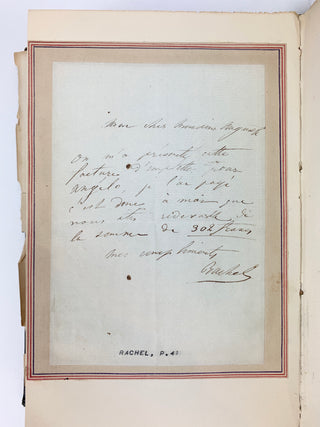 Mon cher Monsieur Auguste
On m'a présenté cette
facture d'emplette pour
angélo, je l'ai payé
c'est donc à moi que
vous êtes redevable de
la somme de 302 francs
mes compliments
Rachel
RACHEL, P. 41